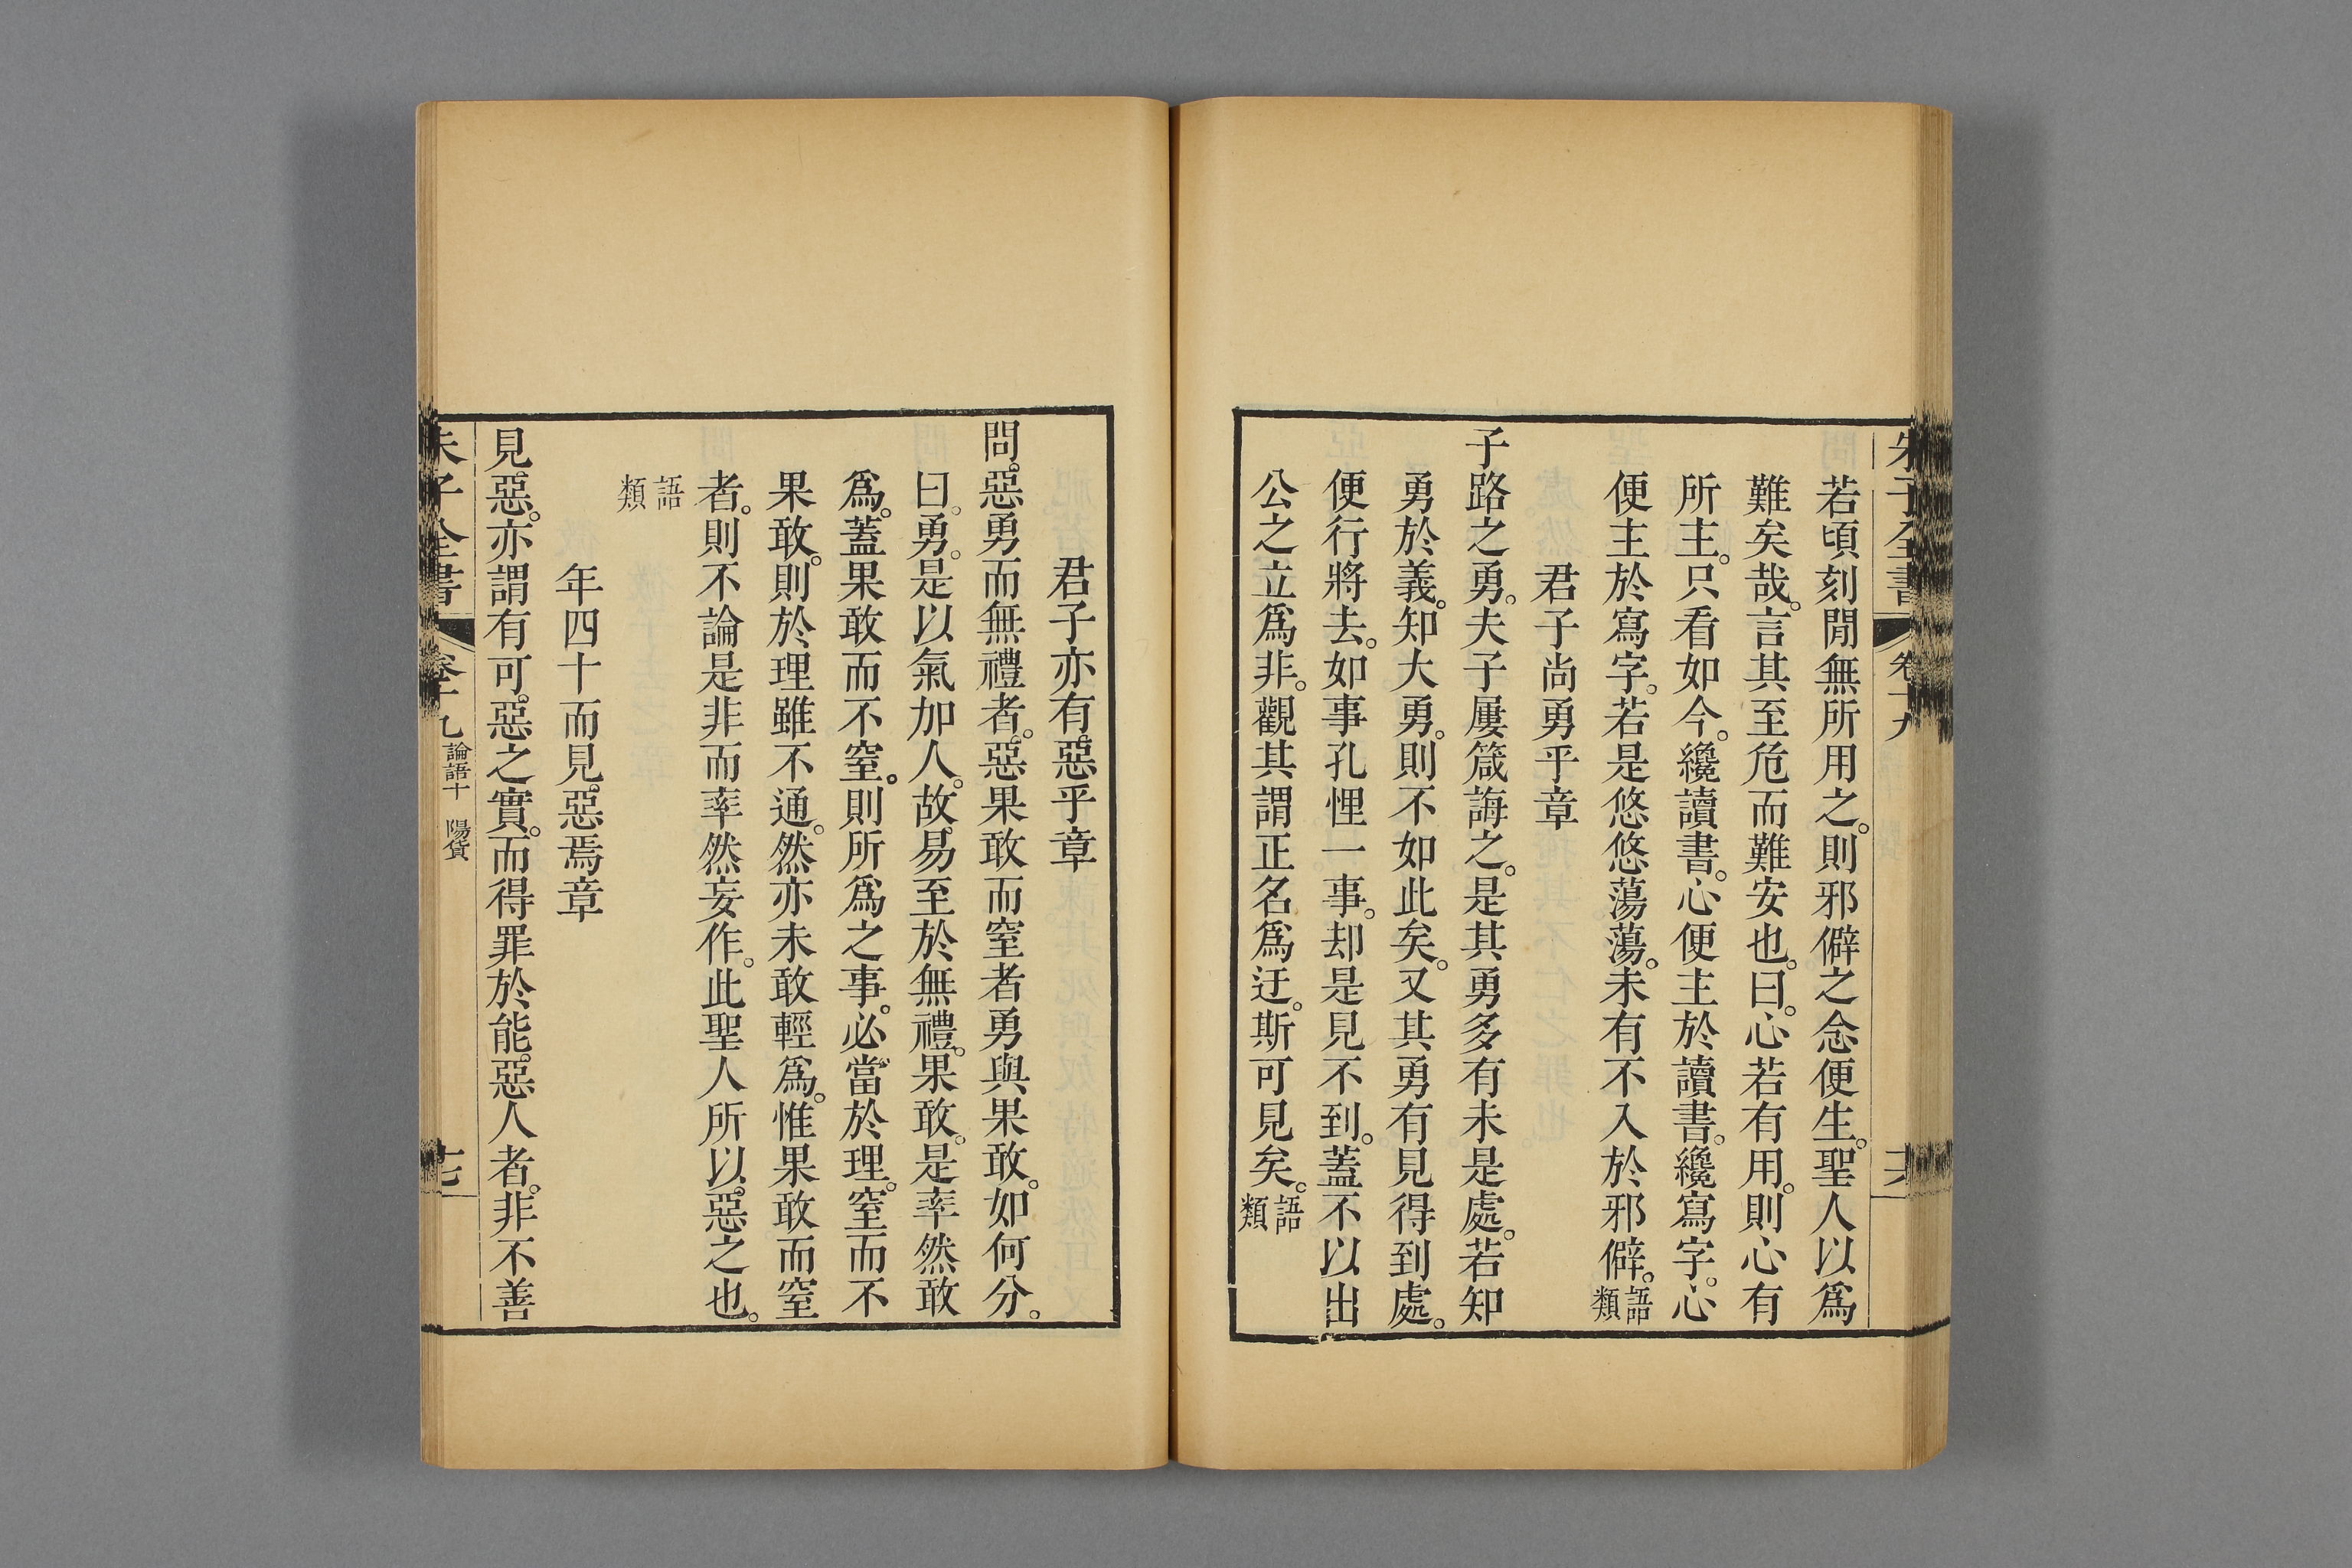 朱子全書 卷十九
若頃刻閒無所用之。則邪僻之念便生。聖人以爲
難矣哉。言其至危而難安也。曰。心若有用。則心有
所主。只看如今。纔讀書。心便主於讀書。纔寫字。心
便主於寫字。若是悠悠蕩蕩。未有不入於邪僻。語類
君子尚勇乎章
子路之勇。夫子屢箴誨之。是其勇多有未是處。若知
勇於義。知大勇。則不如此矣。又其勇有見得到處。
便行將去。如事孔悝一事。却是見不到。蓋不以出
公之立爲非。觀其謂正名爲迂。斯可見矣。語類
君子亦有惡乎章
問。惡勇而無禮者。惡果敢而窒者。勇與果敢。如何分。
曰。勇。是以氣加人。故易至於無禮。果敢。是率然敢
爲。蓋果敢而不窒。則所爲之事。必當於理。窒而不
果敢。則於理雖不通。然亦未敢輕爲。惟果敢而窒
者。則不論是非而率然妄作。此聖人所以惡之也。
語類
年四十而見惡焉章
見惡。亦謂有可惡之實。而得罪於能惡人者。非不善
朱子全書 卷十九 論語十 陽貨 十七